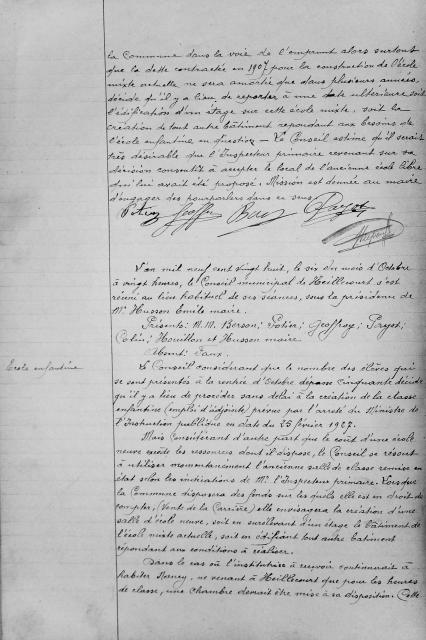 la Commune dans la voie de l'emprunt alors surtout
que la dette contractée en 1907 pour la construction de l'école
mixte actuelle ne sera amortie que dans plusieurs années,
décide qu'il y a lieu de reporter à une date ultérieure soit
l'édification d'un étage sur cette école mixte, soit la
création de tout autre bâtiment répondant aux besoins de
l'école enfantine en question — Le Conseil estime qu'il serait
très désirable que l'Inspecteur primaire revenant sur sa
décision consentit à accepter le local de l'ancienne école libre
qui lui avait été proposé. Mission est donnée au maire
d'engager des pourparlers dans ce sens
Potier Geoffroy
L'an mil neuf cent vingt huit, le six du mois d'Octobre
à vingt heures, le Conseil municipal de Heillecourt s'est
réuni au lieu habituel de ses séances, sous la présidence de
Mr Husson Emile maire.
Présents: M.M. Berson; Potier; Geoffroy; Payot;
Colin; Houillon et Husson maire
Absent: Faux.
Ecole enfantine
Le Conseil considérant que le nombre des élèves qui
se sont présentés à la rentrée d'Octobre dépasse cinquante décide
qu'il y a lieu de procéder sans délai à la création de la classe
enfantine (emploi d'adjointe) prévue par l'arrêté du Ministre de
l'Instruction publique en date du 25 février 1927.
Mais considérant d'autre part que le coût d'une école
neuve excède les ressources dont il dispose, le Conseil se résout
à utiliser momentanément l'ancienne salle de classe remise en
état selon les indications de Mr l'Inspecteur primaire. Lorsque
la Commune disposera des fonds sur lesquels elle est en droit de
compter, (Vente de la Carrière) elle envisagera la création d'une
salle d'école neuve, soit en surélevant d'un étage le bâtiment de
l'école mixte actuelle, soit en édifiant tout autre bâtiment
répondant aux conditions à réaliser.
Dans le cas où l'institutrice à recevoir continuerait à
habiter Nancy, ne venant à Heillecourt que pour les heures
de classe, une chambre devrait être mise à sa disposition. Cette